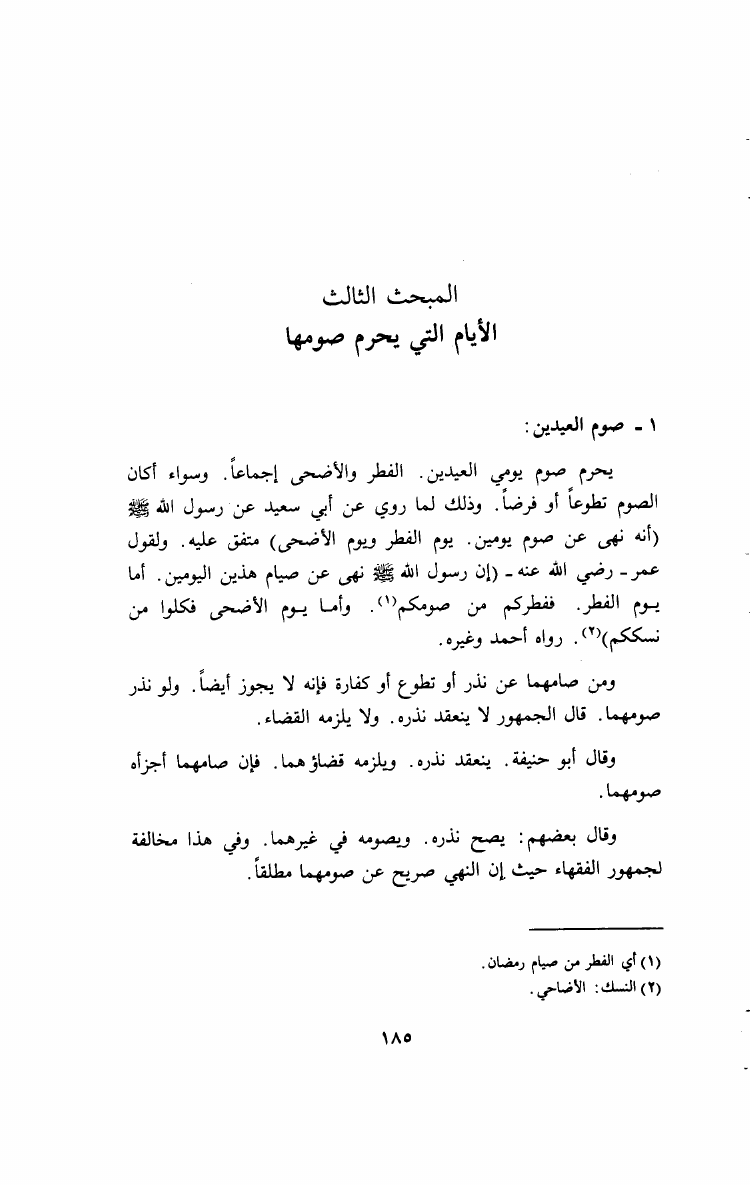 المبحث الثالث
الأيام التي يحرم صومها
١ ـ صوم العيدين :
يحرم صوم يومي العيدين. الفطر والأضحى إجماعاً. وسواء أكان
الصوم تطوعاً أو فرضاً. وذلك لما روي عن أبي سعيد عن رسول الله ﷺ
(أنه نهى عن صوم يومين. يوم الفطر ويوم الأضحى) متفق عليه. ولقول
عمر ـ رضي الله عنه ـ (إن رسول الله ﷺ نهى عن صيام هذين اليومين. أما
يـوم الفطر. ففطركم من صومكم(١). وأمـا يـوم الأضحى فكلوا من
نسككم)(٢). رواه أحمد وغيره.
ومن صامهما عن نذر أو تطوع أو كفارة فإنه لا يجوز أيضاً. ولو نذر
صومهما. قال الجمهور لا ينعقد نذره. ولا يلزمه القضاء.
وقال أبو حنيفة. ينعقد نذره. ويلزمه قضاؤهما. فإن صامهما أجزأه
صومهما.
وقال بعضهم: يصح نذره. ويصومه في غيرهما. وفي هذا مخالفة
لجمهور الفقهاء حيث إن النهي صريح عن صومهما مطلقاً.
(١) أي الفطر من صيام رمضان.
(٢) النسك: الأضاحي.
١٨٥